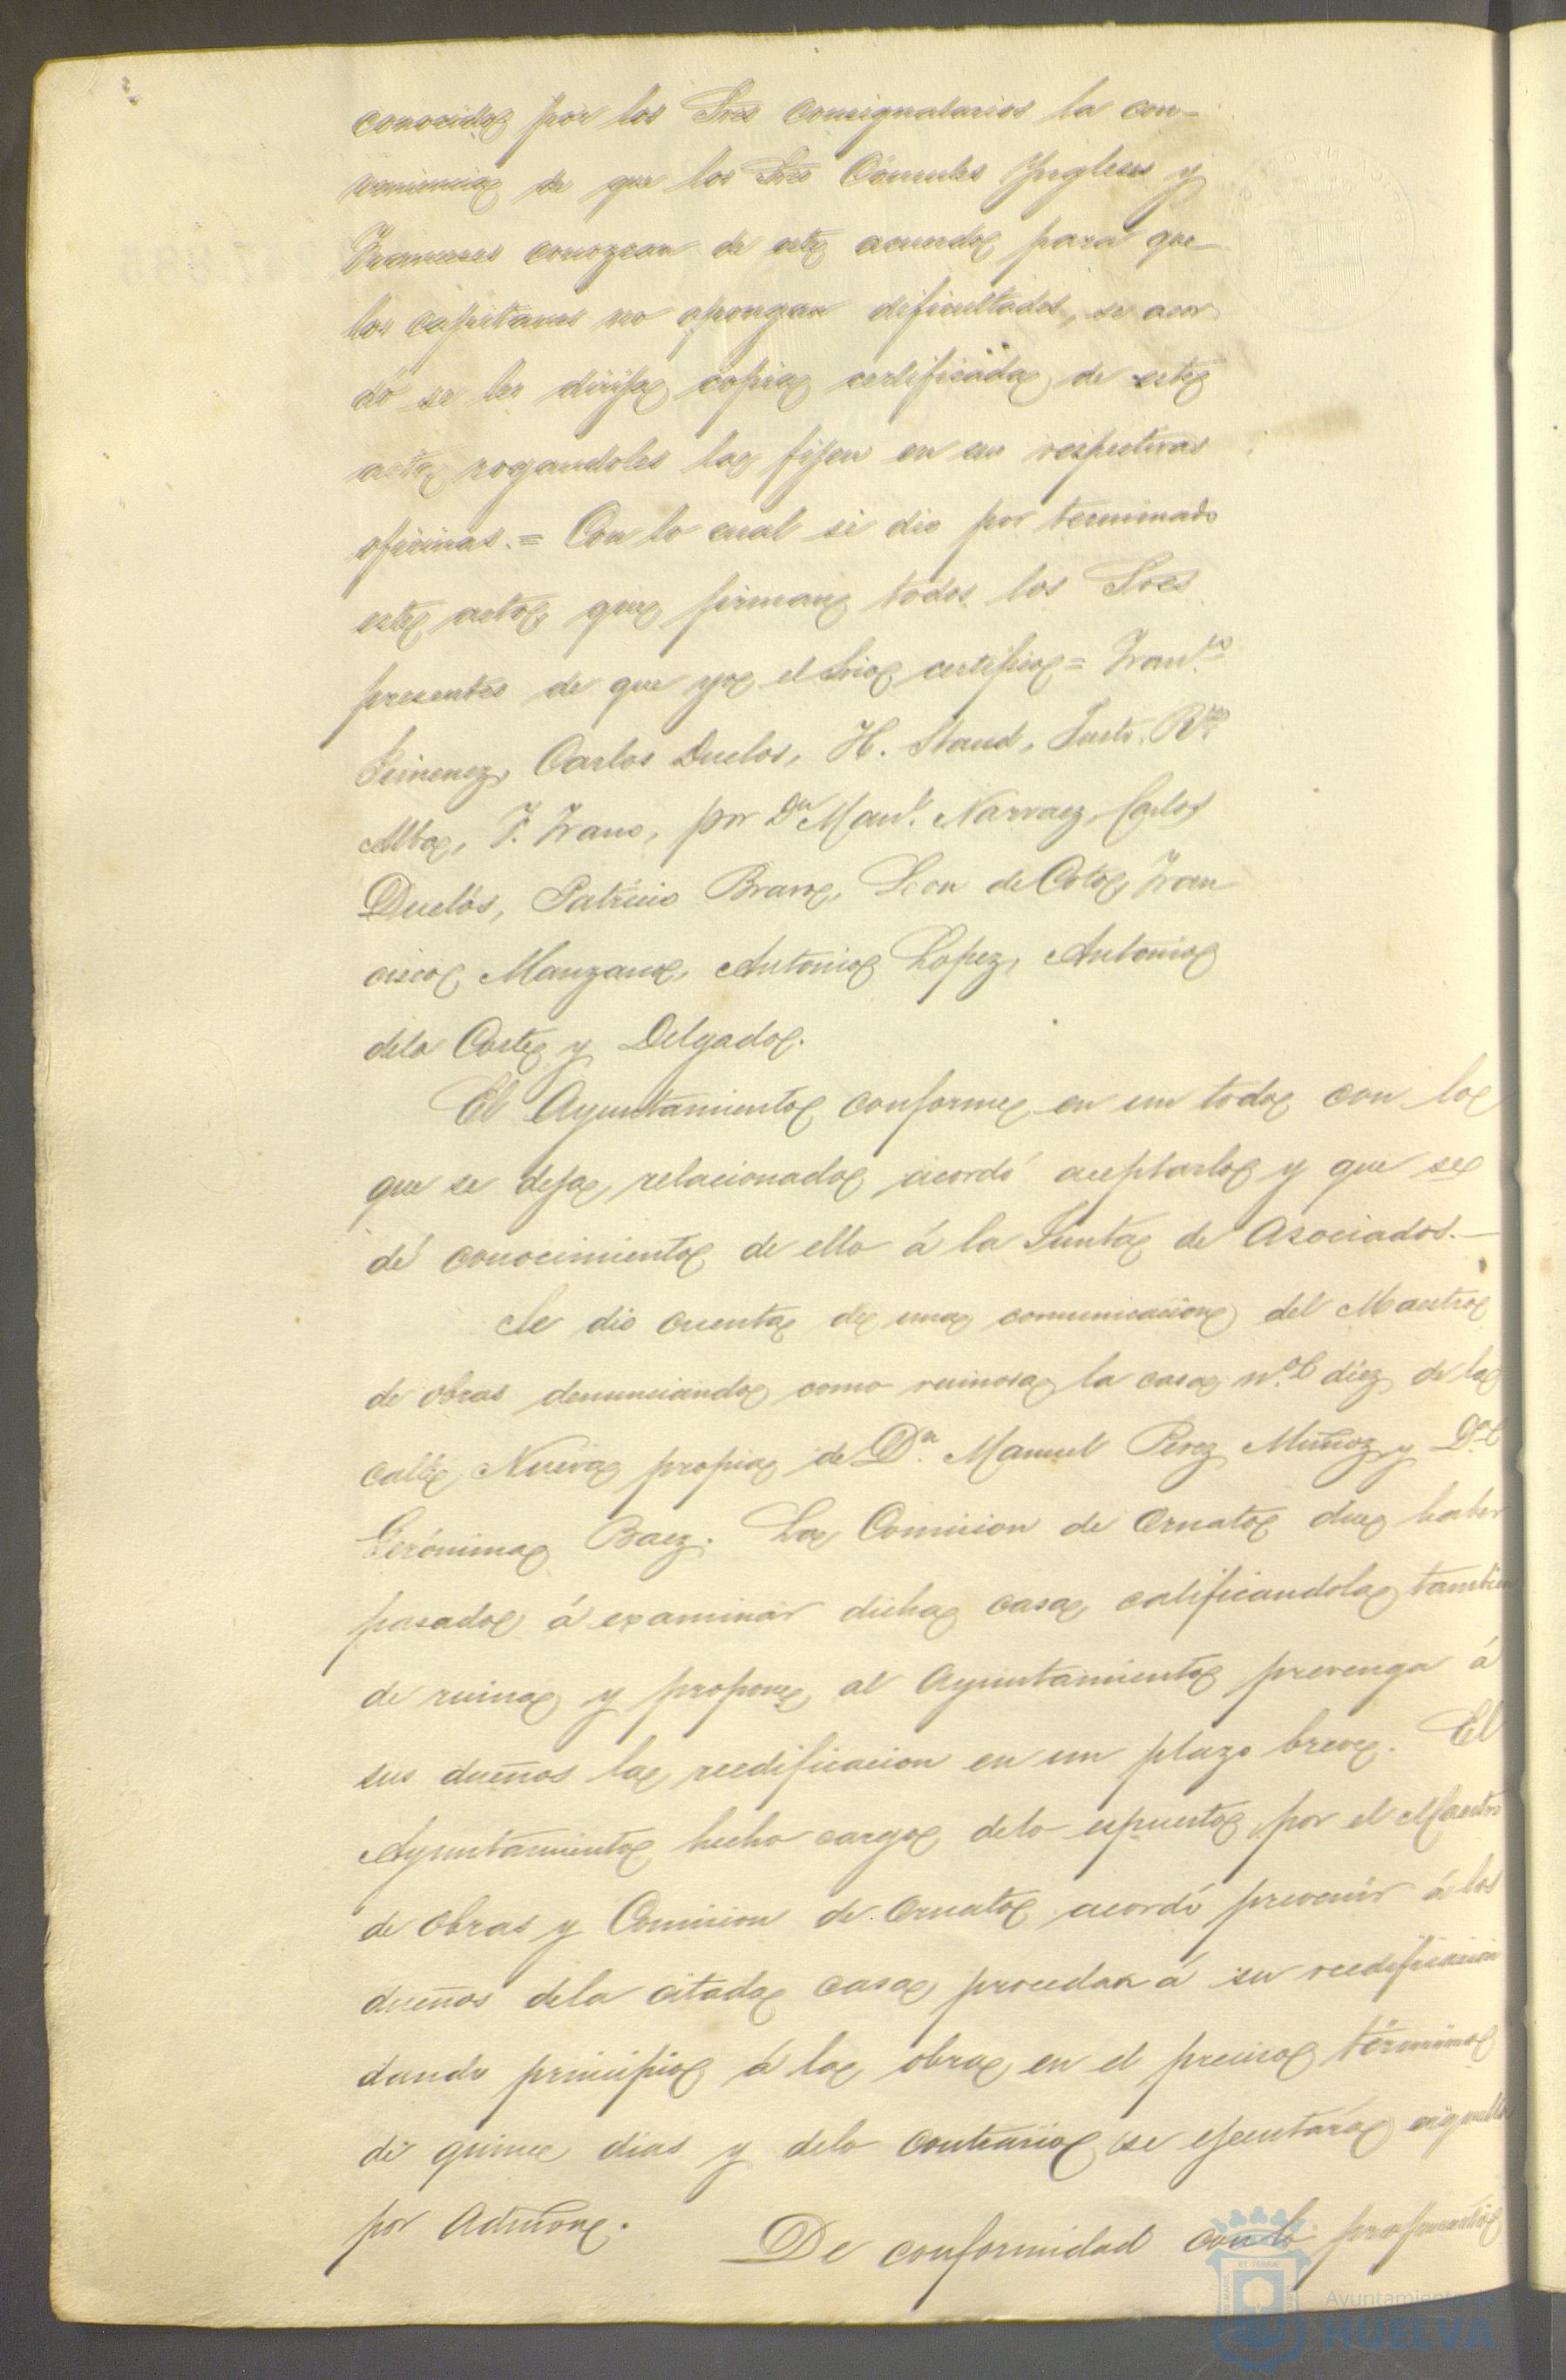 conocido por los Sres Consignatarios la con-
veniencia de que los Sres Cónsules Yngleses y
Franceses conozcan de este acuerdo para que
los capitanes no opongan dificultades, se acor
dó se les dirija copia certificada de este
acta rogandoles la fijen en sus respectivas
oficinas. = Con lo cual se dio por terminado
este acto, que firman todos los Sres
presentes de que yo el Srio certifico = Franco
Jimenez, Carlos Duclos, H. Staud, Justo Rz
Alba, F. Franc, por Dn Manl. Narvaez, Carlos
Duclós, Patricio Bravo, Leon de Coto, Fran
cisco Manzano, Antonio Lopez, Antonio
dela Corte y Delgado.
El Ayuntamiento conforme en un todo con lo
que se deja relacionado acordó aceptarlo y que se
dé conocimiento de ello á la Junta de Asociados.—
Se dio cuenta de una comunicacion del Maestro
de obras denunciando como ruinosa la casa no. diez de la
calle Nueva propia de Dn. Manuel Perez Muñoz y Da.
Gerónima Baez. La Comision de Ornato dice haber
pasado á examinar dicha casa, calificandola tambien
de ruina y propone al Ayuntamiento prevenga á
sus dueños la reedificacion en un plazo breve. El
Ayuntamiento hecho cargo delo espuesto por el Maestro
de obras y Comision de Ornato acordó prevenir á los
dueños dela citada casa procedan á su reedificacion
dando principio á la obra en el preciso término
de quince dias y delo contrario se ejecutará aquella
por Admon.
De conformidad con lo propuesto
Ayuntamiento
HUELVA